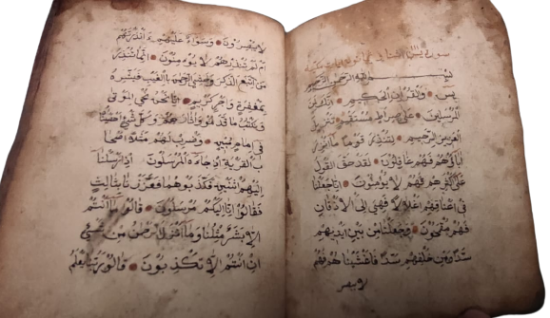 سورة يس
بسم الله الرحمن الرحيم
يس والقرآن الحكيم انك لمن
المرسلين على صراط مستقيم تنزيل
العزيز الرحيم لتنذر قوما ما انذر
اباؤهم فهم غافلون لقد حق القول
على اكثرهم فهم لا يؤمنون انا جعلنا
في اعناقهم اغلالا فهي الى الاذقان
فهم مقمحون وجعلنا من بين ايديهم
سدا ومن خلفهم سدا فاغشيناهم فهم
لا يبصر
لا يبصرون وسواء عليهم ءانذرتهم
ام لم تنذرهم لا يؤمنون انما تنذر
من اتبع الذكر وخشي الرحمن بالغيب فبشره
بمغفرة واجر كريم انا نحن نحي الموتى
ونكتب ما قدموا واثارهم وكل شيء احصيناه
في امام مبين واضرب لهم مثلا اصحا
ب القرية اذ جاءها المرسلون اذ ارسلنا
اليهم اثنين فكذبوهما فعززنا بثالث
فقالوا انا اليكم مرسلون قالوا ما انتم
الا بشر مثلنا وما انزل الرحمن من شيء
ان انتم الا تكذبون قالوا ربنا يعلم